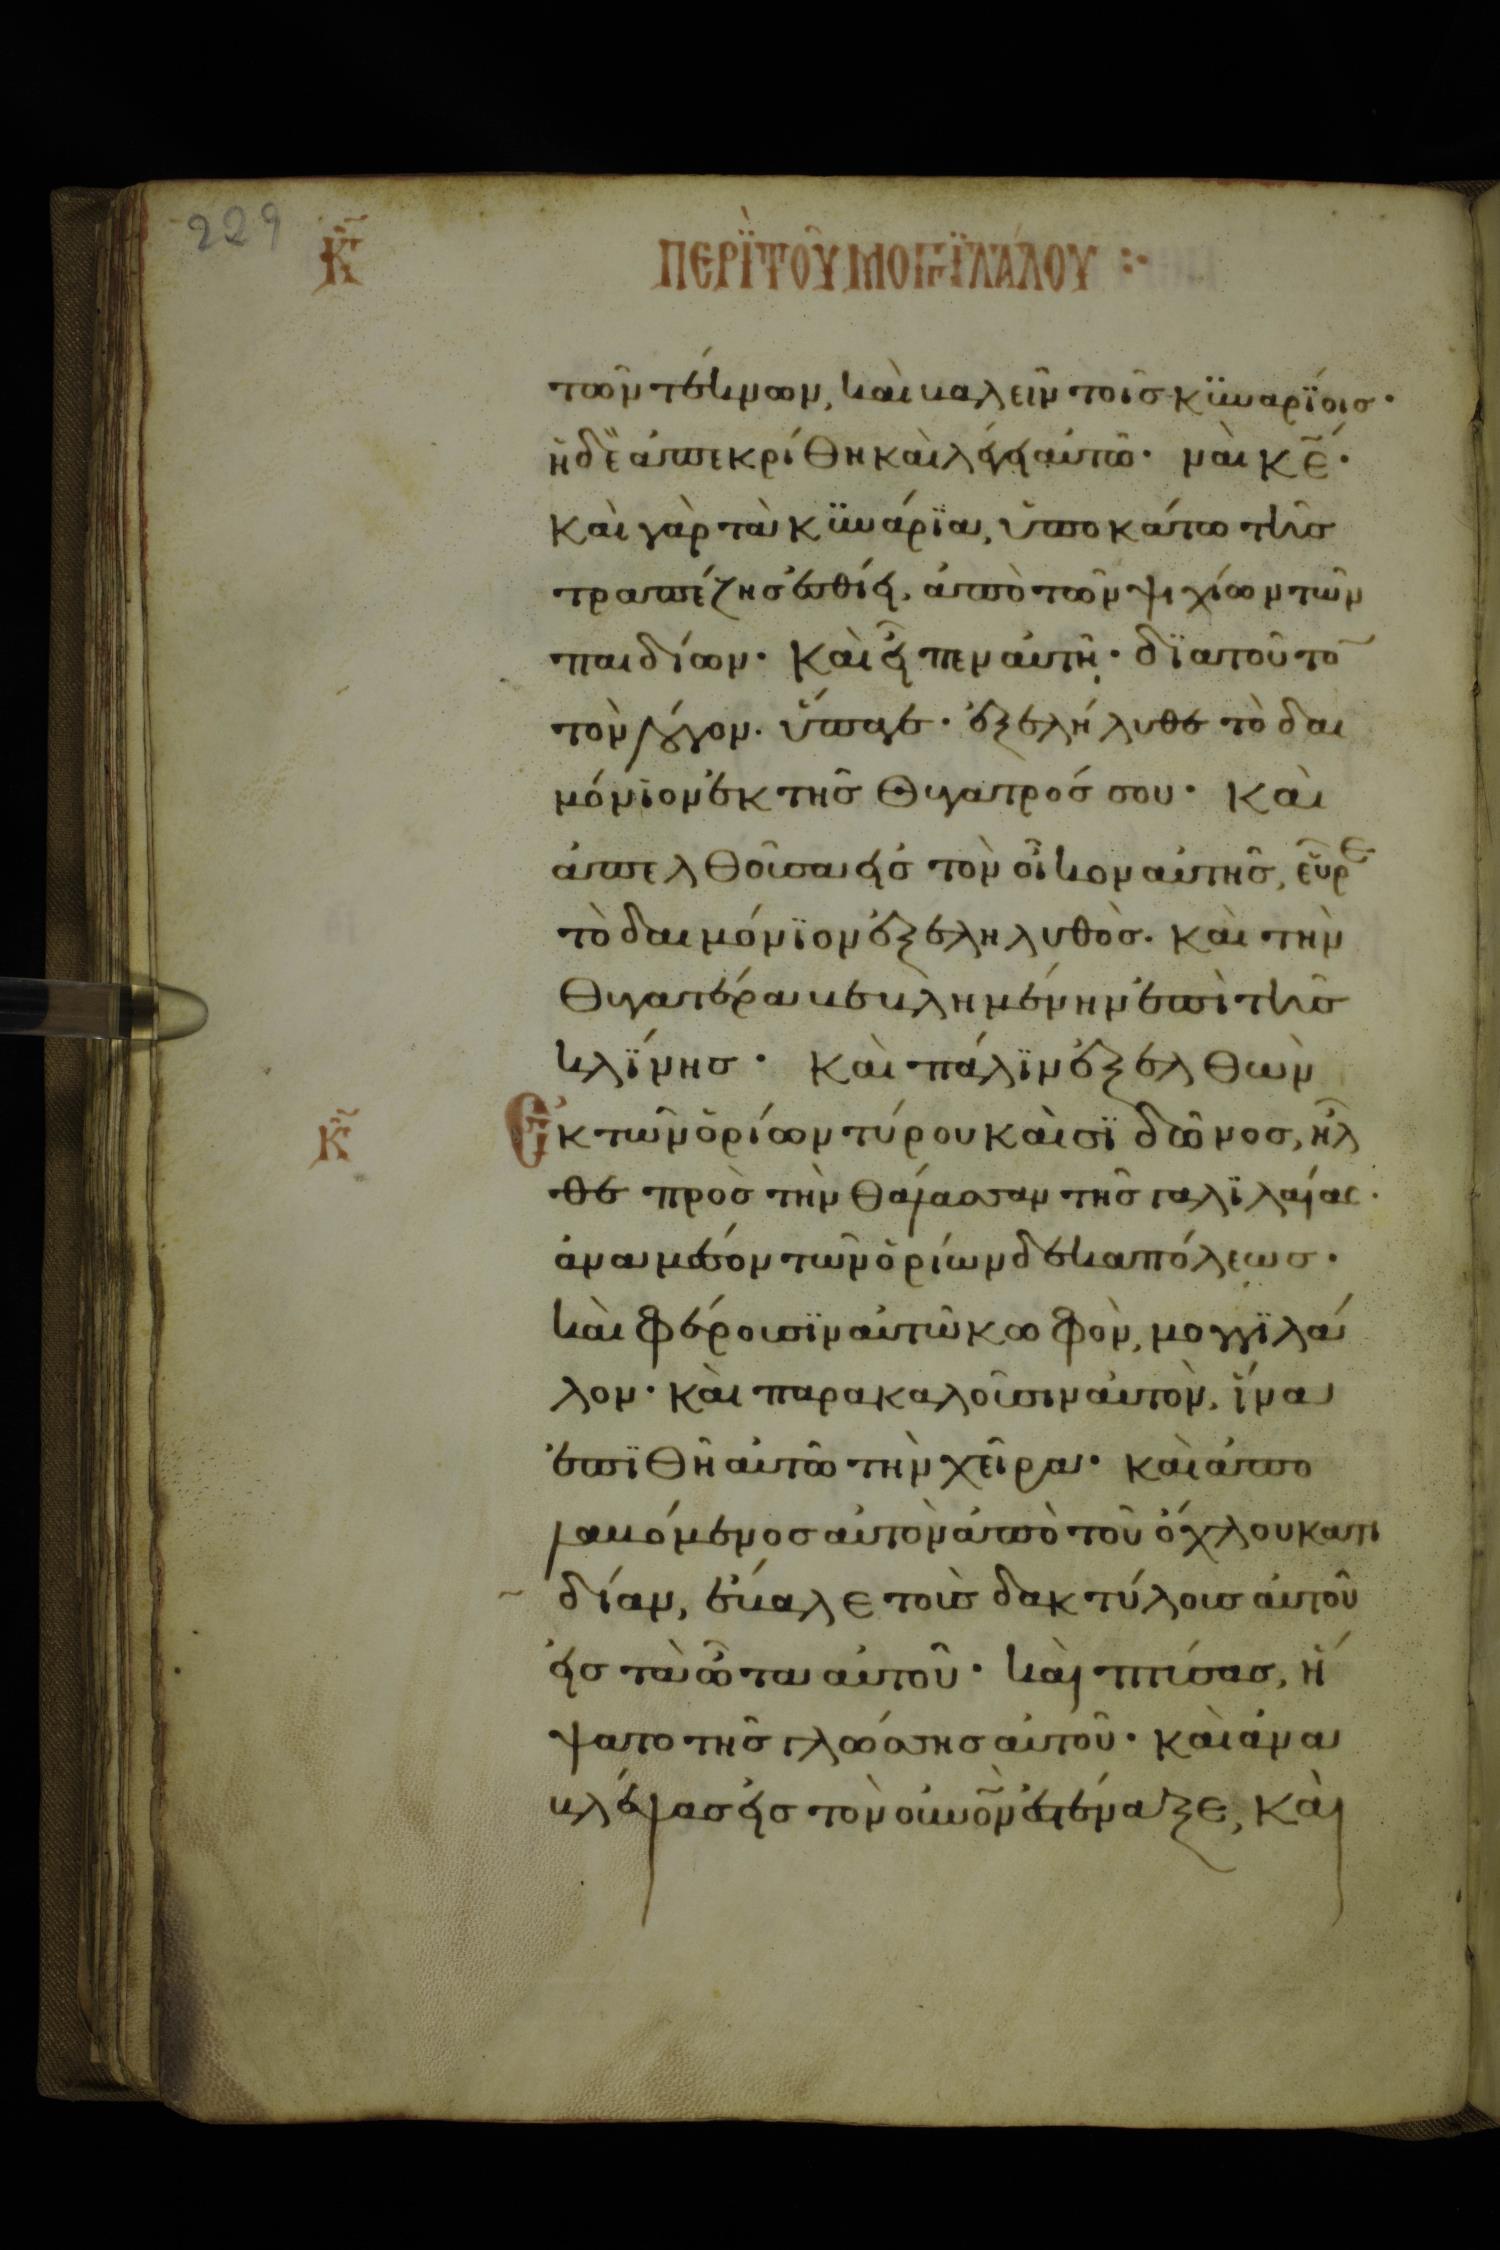 229
Κ̃
ΠΕΡΪ ΤΟΥ̂ ΜΟΓΓΪΛΆΛΟΥ :·
τῶν τέκνων, καὶ καλεῖν τοῖς κϋναρΐοις·
ἡ δὲ ἀπεκρίθη καὶ λέγει αὐτῶ· ναὶ κ̅ε̅·
καὶ γὰρ τὰ κϋνάρϊα, ὑποκάτω τῆς
τραπέζης ἐσθίει, ἀπὸ τῶν ψιχίων τῶν
παιδίων· καὶ εἶπεν αὐτῆ· δϊα τοῦτο
τὸν λόγον. ὕπαγε· ἐξελήλυθε τὸ δαι
μόνιον ἐκ τῆς θυγατρός σου· καὶ
ἀπελθοῦσα εἰς τὸν οἶκον αὐτῆς, εὗρε
τὸ δαιμόνϊον ἐξεληλυθὸς· καὶ τὴν
θυγατέρα κεκλημένην ἐπὶ τῆς
κλΐνης· καὶ πάλϊν ἐξελθὼν
Κ̃
Ἐκ τῶν ὁρίων τύρου καὶ σϊδῶνος, ἦλ
θε πρὸς τὴν θάλασσαν τῆς γαλϊλαίας·
ἀνα μέσον τῶν ὁρίων δεκαπόλεως·
καὶ φέρουσϊν αὐτῶ κωφὸν, μογγϊλά
λον· καὶ παρακαλοῦσιν αὐτὸν, ἵνα
ἐπϊθῆ αὐτῶ τὴν χεῖρα· καὶ ἀπο
λαβόμενος αὐτὸν ἀπὸ τοῦ ὄχλου κατι
δίαν, ἔβαλε τοὺς δακτύλους αὐτοῦ
εἰς τὰ ὦτα αὐτοῦ· καὶ πτύσας, ἥ
ψατο τῆς γλώσσης αὐτοῦ· καὶ ἀνα
βλέψας εἰς τὸν οὐνὸν ἐστέναξε, καὶ